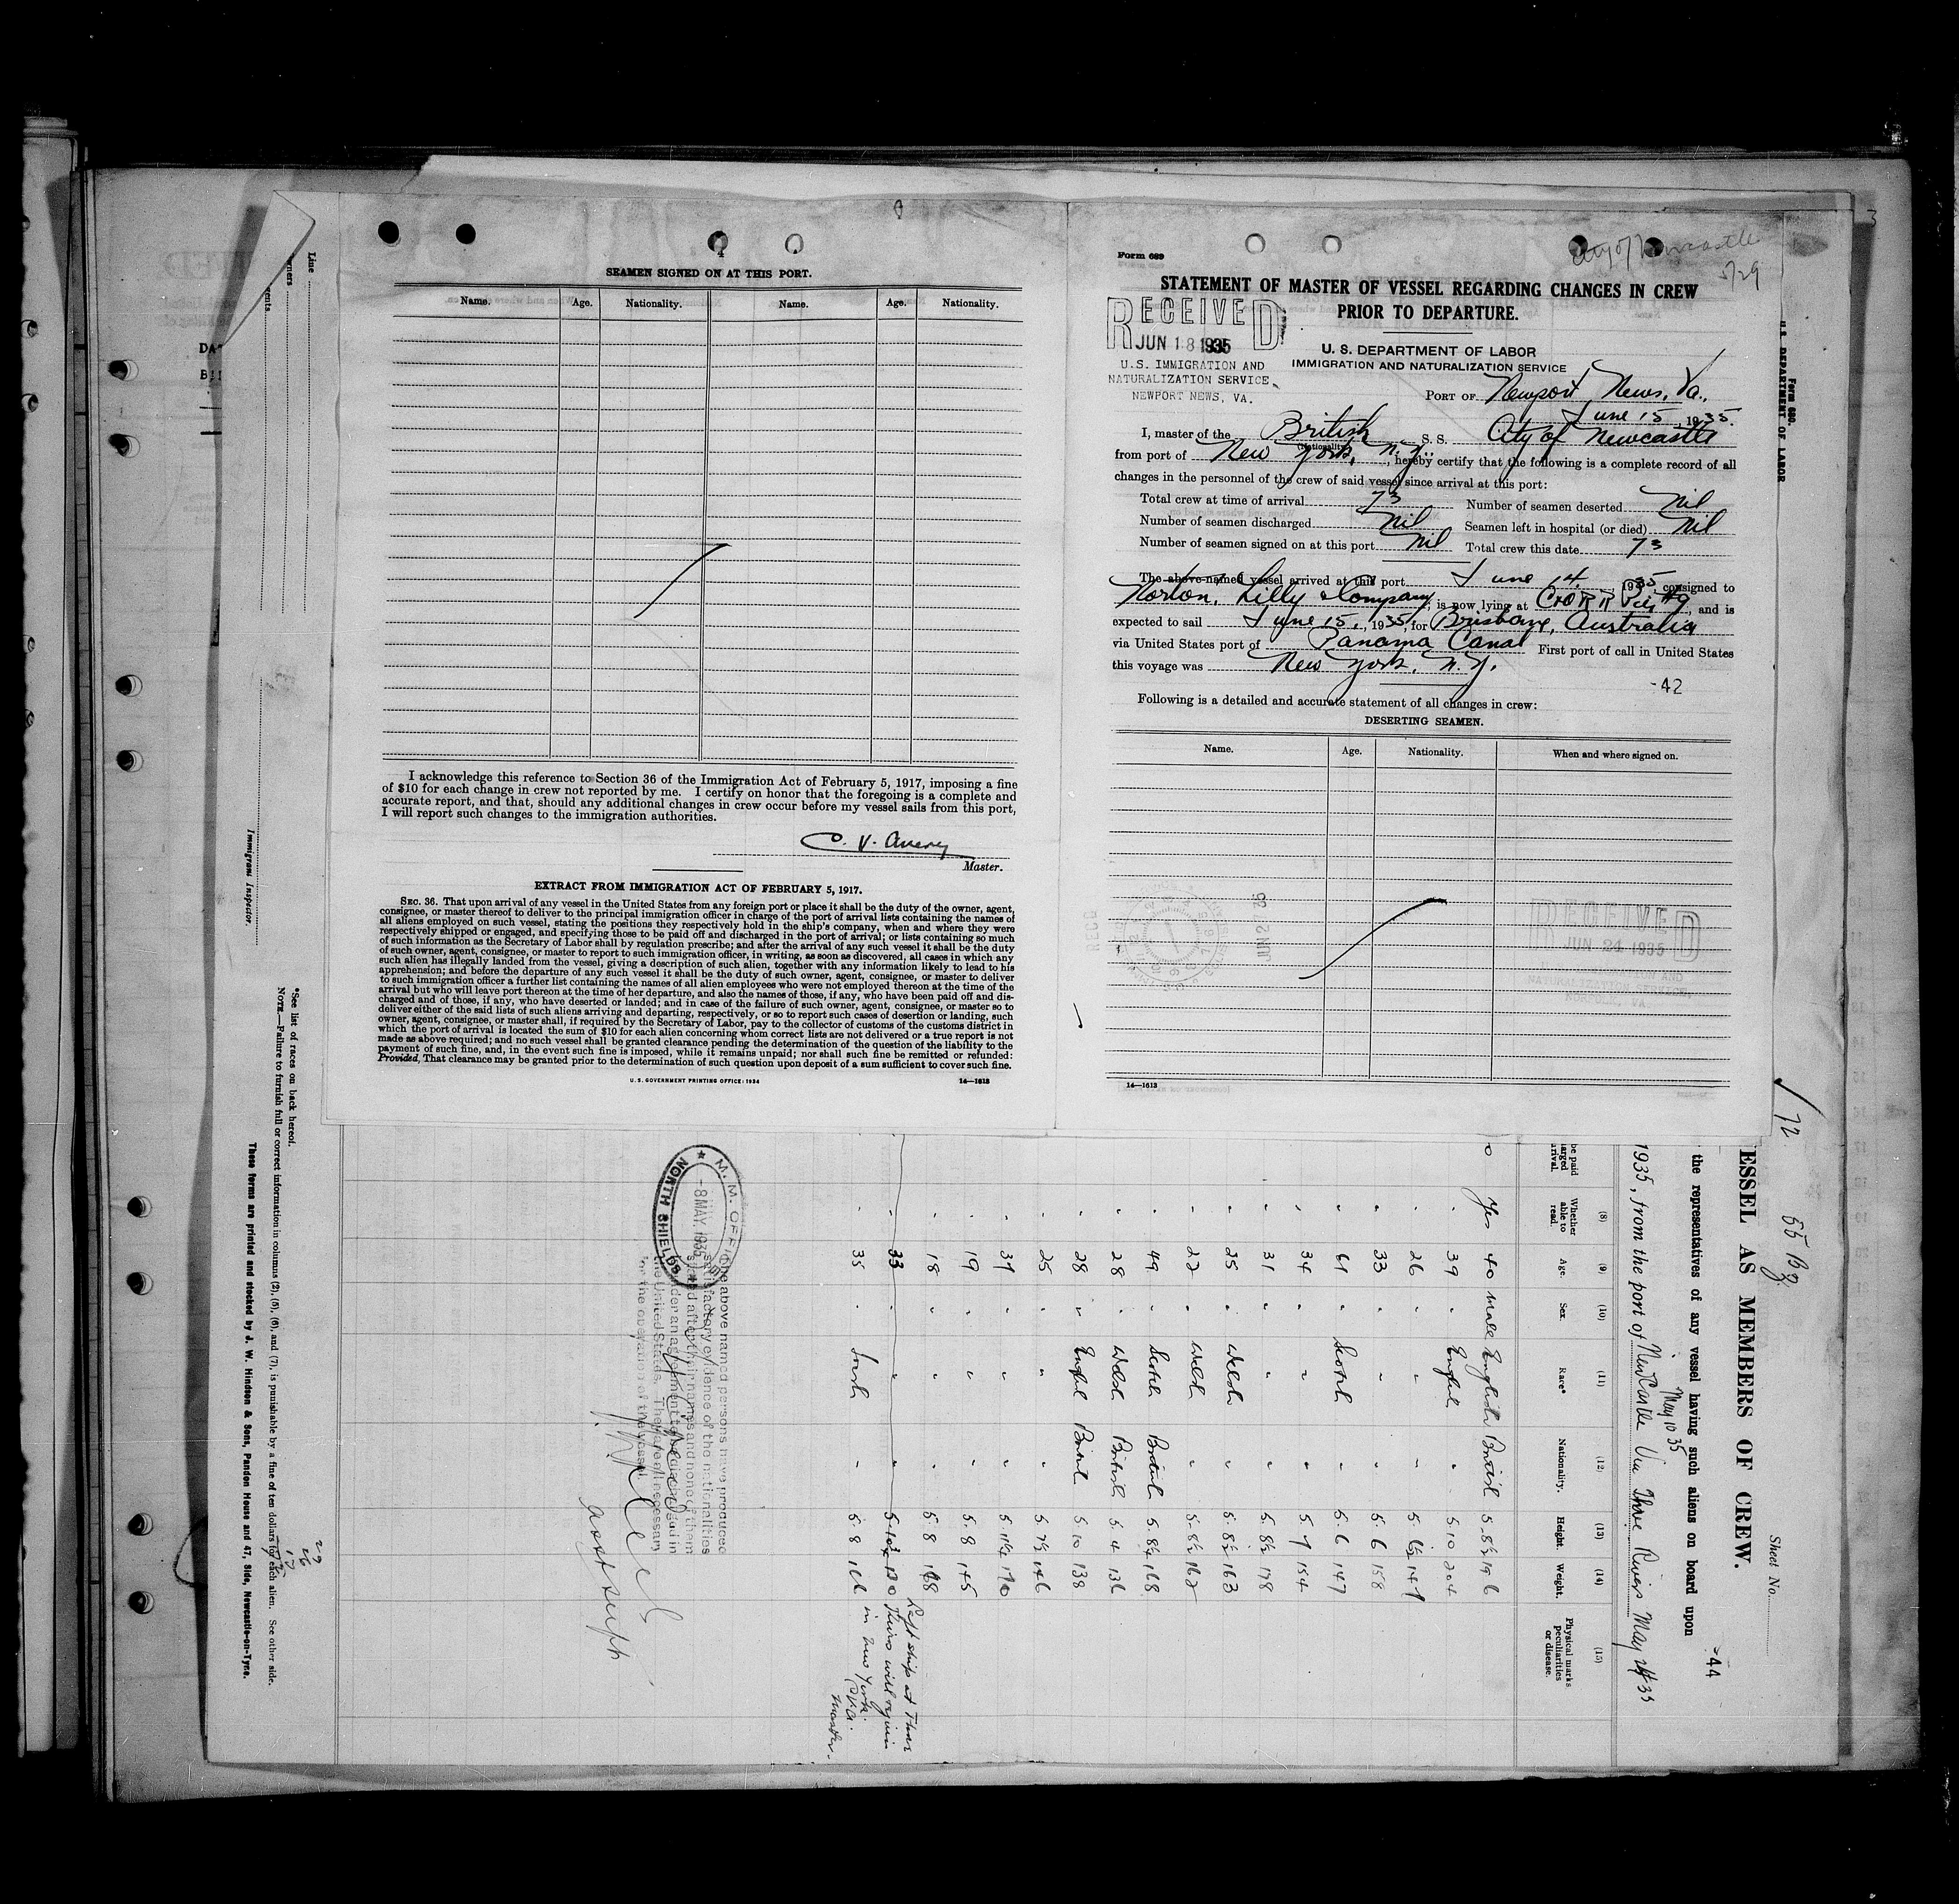 SEAMEN SIGNED ON AT THIS PORT.
Name. Age. Nationality. Name. Age. Nationality.
I acknowledge this reference to Section 36 of the Immigration Act of February 5, 1917, imposing a fine
of $10 for each change in crew not reported by me. I certify on honor that the foregoing is a complete and
accurate report, and that, should any additional changes in crew occur before my vessel sails from this port,
I will report such changes to the immigration authorities.
C. V. Avery
Master.
EXTRACT FROM IMMIGRATION ACT OF FEBRUARY 5, 1917.
SEC. 36. That upon arrival of any vessel in the United States from any foreign port or place it shall be the duty of the owner, agent,
consignee, or master thereof to deliver to the principal immigration officer in charge of the port of arrival lists containing the names of
all aliens employed on such vessel, stating the positions they respectively hold in the ship's company, when and where they were
respectively shipped or engaged, and specifying those to be paid off and discharged in the port of arrival; or lists containing so much
of such information as the Secretary of Labor shall by regulation prescribe; and after the arrival of any such vessel it shall be the duty
of such owner, agent, consignee, or master to report to such immigration officer, in writing, as soon as discovered, all cases in which any
such alien has illegally landed from the vessel, giving a description of such alien, together with any information likely to lead to his
apprehension; and before the departure of any such vessel it shall be the duty of such owner, agent, consignee, or master to deliver
to such immigration officer a further list containing the names of all alien employees who were not employed thereon at the time of the
arrival but who will leave port thereon at the time of her departure, and also the names of those, if any, who have been paid off and dis-
charged and of those, if any, who have deserted or landed; and in case of the failure of such owner, agent, consignee, or master so to
deliver either of the said lists of such aliens arriving and departing, respectively, or so to report such cases of desertion or landing, such
owner, agent, consignee, or master shall, if required by the Secretary of Labor, pay to the collector of customs of the customs district in
which the port of arrival is located the sum of $10 for each alien concerning whom correct lists are not delivered or a true report is not
made as above required; and no such vessel shall be granted clearance pending the determination of the question of the liability to the
payment of such fine, and, in the event such fine is imposed, while it remains unpaid; nor shall such fine be remitted or refunded:
Provided, That clearance may be granted prior to the determination of such question upon deposit of a sum sufficient to cover such fine.
U.S. GOVERNMENT PRINTING OFFICE: 1934 14—1613
Form 689
City of Newcastle
5/29
STATEMENT OF MASTER OF VESSEL REGARDING CHANGES IN CREW
PRIOR TO DEPARTURE.
RECEIVED
JUN 18 1935
U.S. IMMIGRATION AND
NATURALIZATION SERVICE,
NEWPORT NEWS, VA.
U. S. DEPARTMENT OF LABOR
IMMIGRATION AND NATURALIZATION SERVICE
PORT OF Newport News, Va.,
June 15, 1935.
I, master of the British S. S. City of Newcastle
(Nationality)
from port of New York, N.Y., hereby certify that the following is a complete record of all
changes in the personnel of the crew of said vessel since arrival at this port:
Total crew at time of arrival 73 Number of seamen deserted Nil
Number of seamen discharged Nil Seamen left in hospital (or died) Nil
Number of seamen signed on at this port Nil Total crew this date 73
The above-named vessel arrived at this port June 14, 1935, consigned to
Norton, Lilly & Company, is now lying at C&O RR Pier #9, and is
expected to sail June 15, 1935, for Brisbane, Australia
via United States port of Panama Canal First port of call in United States
this voyage was New York, N.Y.
-42
Following is a detailed and accurate statement of all changes in crew:
DESERTING SEAMEN.
Name. Age. Nationality. When and where signed on.
RECEIVED
JUN 24 1935
JUN 27 35
14—1613
Form 680.
U. S. DEPARTMENT OF LABOR
Sheet No.
72 55 Bz.
ESSEL AS MEMBERS OF CREW.
-44
the representatives of any vessel having such aliens on board upon
May 10 35
1935, from the port of NewCastle Via Three Rivers May 24 35
(8) (9) (10) (11) (12) (13) (14) (15)
Whether able to read. Age. Sex. Race* Nationality. Height. Weight. Physical marks peculiarities or disease.
Yes 40 male English British 5.8½ 196
" 39 " English " 5.10 204
" 26 " " " 5.6½ 147
" 33 " " " 5.6 158
" 61 " Scotch " 5.6 147
" 34 " " " 5.7 154
" 31 " " " 5.8½ 178
" 25 " Welsh " 5.8½ 163
" 22 " Welsh " 5.8½ 162
" 49 " Scotch British 5.8¼ 168
" 28 " Welsh British 5.4 136
" 28 " English British 5.10 138
" 25 " " " 5.7½ 146
" 39 " " " 5.11¼ 170
" 19 " " " 5.8 145
" 18 " " " 5.8 168
" 33 " " " 5.10½ 130 Left ship at Three Rivers will rejoin in New York. CVA. Master.
" 35 " Irish " 5.8 166
M. M. OFFICE
-8 MAY. 1935
NORTH SHIELDS
The above named persons have produced
satisfactory evidence of the nationalities
stated after their names and none of them
under an agreement to be discharged in
the United States. They are all necessary
for the operation of the vessel
Asst Supt
29
26
17
72
*See list of races on back hereof.
NOTE.—Failure to furnish full or correct information in columns (2), (5), (6), and (7), is punishable by a fine of ten dollars for each alien. See other side.
These forms are printed and stocked by J. W. Hindson & Sons, Pandon House and 47, Side, Newcastle-on-Tyne.
Immigrant Inspector.
Line